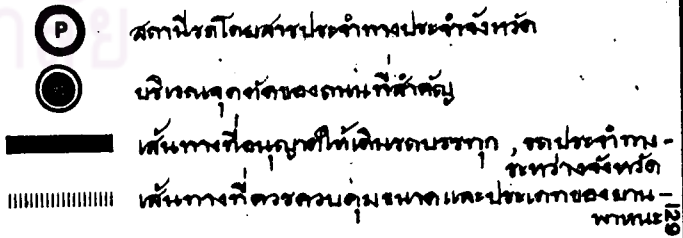 P สถานีรถโดยสารประจำทางประจำจังหวัด
บริเวณจุดตัดของถนนที่สำคัญ
เส้นทางที่อนุญาตให้เดินรถบรรทุก , รถประจำทาง-
ระหว่างจังหวัด
เส้นทางที่ควรควบคุมขนาดและประเภทของยาน-
พาหนะ
129